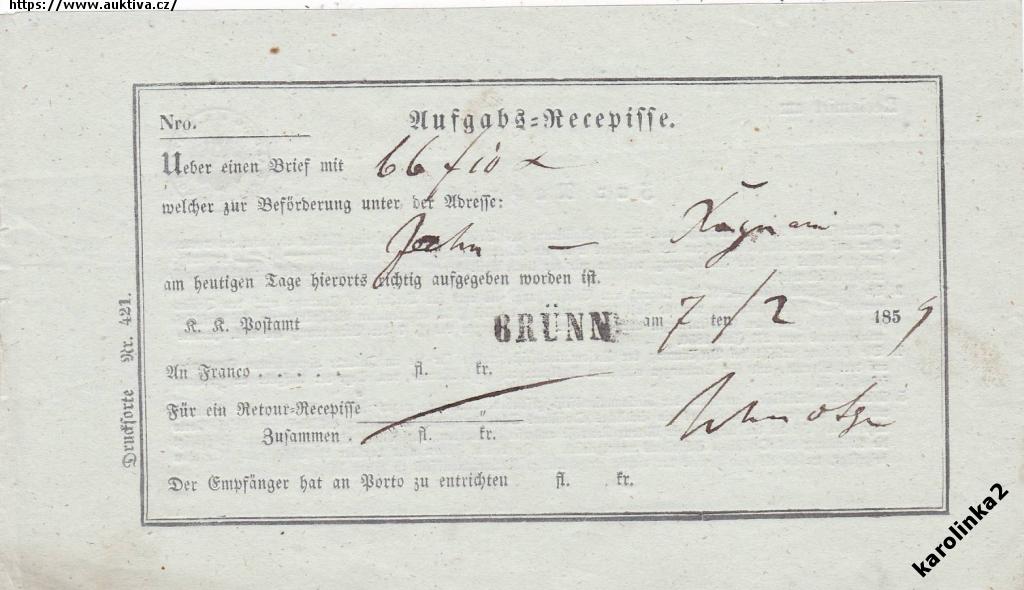 https://www.auktiva.cz/
Nro.
Aufgabs=Recepisse.
Ueber einen Brief mit 66 f 10 x
welcher zur Beförderung unter der Adresse:
—
am heutigen Tage hierorts richtig aufgegeben worden ist.
K. K. Postamt BRÜNN am 7 ten /2 1859
An Franco . . . . . fl. kr.
Für ein Retour=Recepisse "
Zusammen . fl. kr.
Der Empfänger hat an Porto zu entrichten fl. kr.
Drucksorte Nr. 421.
karolinka2